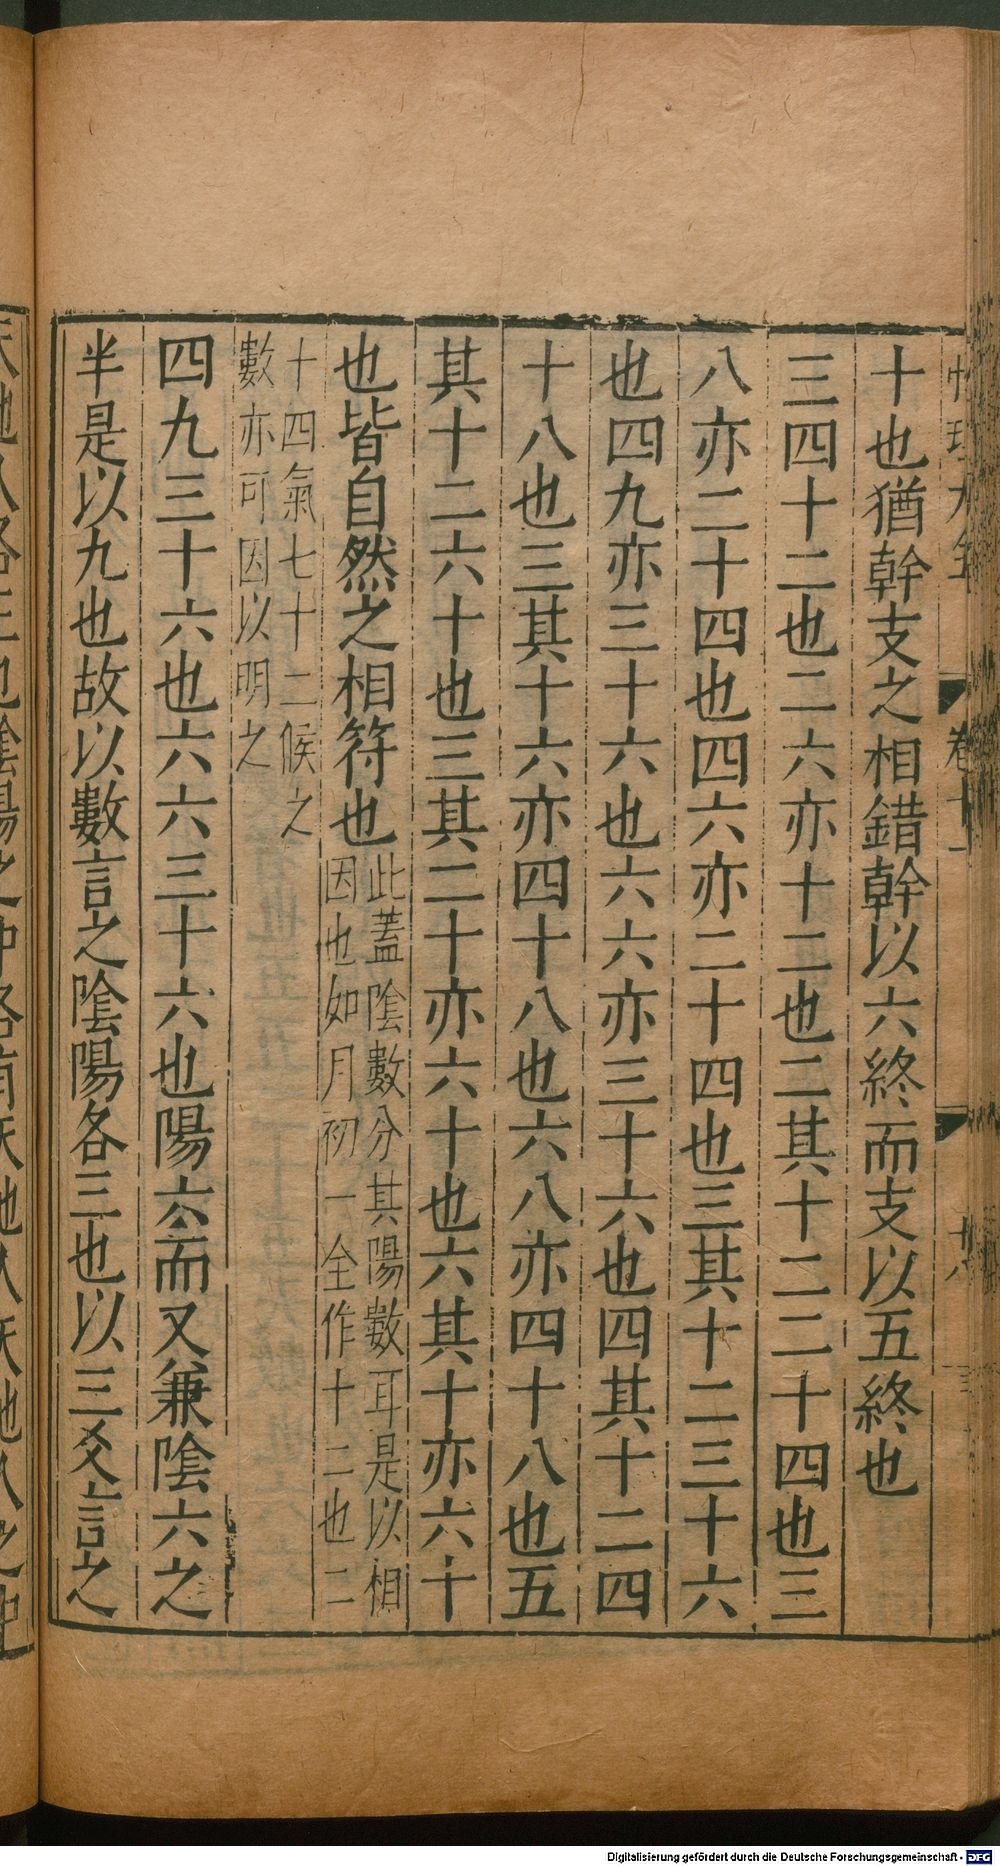 十也猶幹支之相錯幹以六終而支以五終也
三四十二也二六亦十二也二其十二二十四也三
八亦二十四也四六亦二十四也三其十二三十六
也四九亦三十六也六六亦三十六也四其十二四
十八也三其十六亦四十八也六八亦四十八也五
其十二六十也三其二十亦六十也六其十亦六十
也皆自然之相符也
此蓋陰數分其陽數耳是以相
因也如月初一全作十二也二
十四氣七十二候之
數亦可因以明之
四九三十六也六六三十六也陽六而又兼陰六之
半是以九也故以數言之陰陽各三也以三爻言之
卷十一
十八
Digitalisierung gefördert durch die Deutsche Forschungsgemeinschaft - DFG